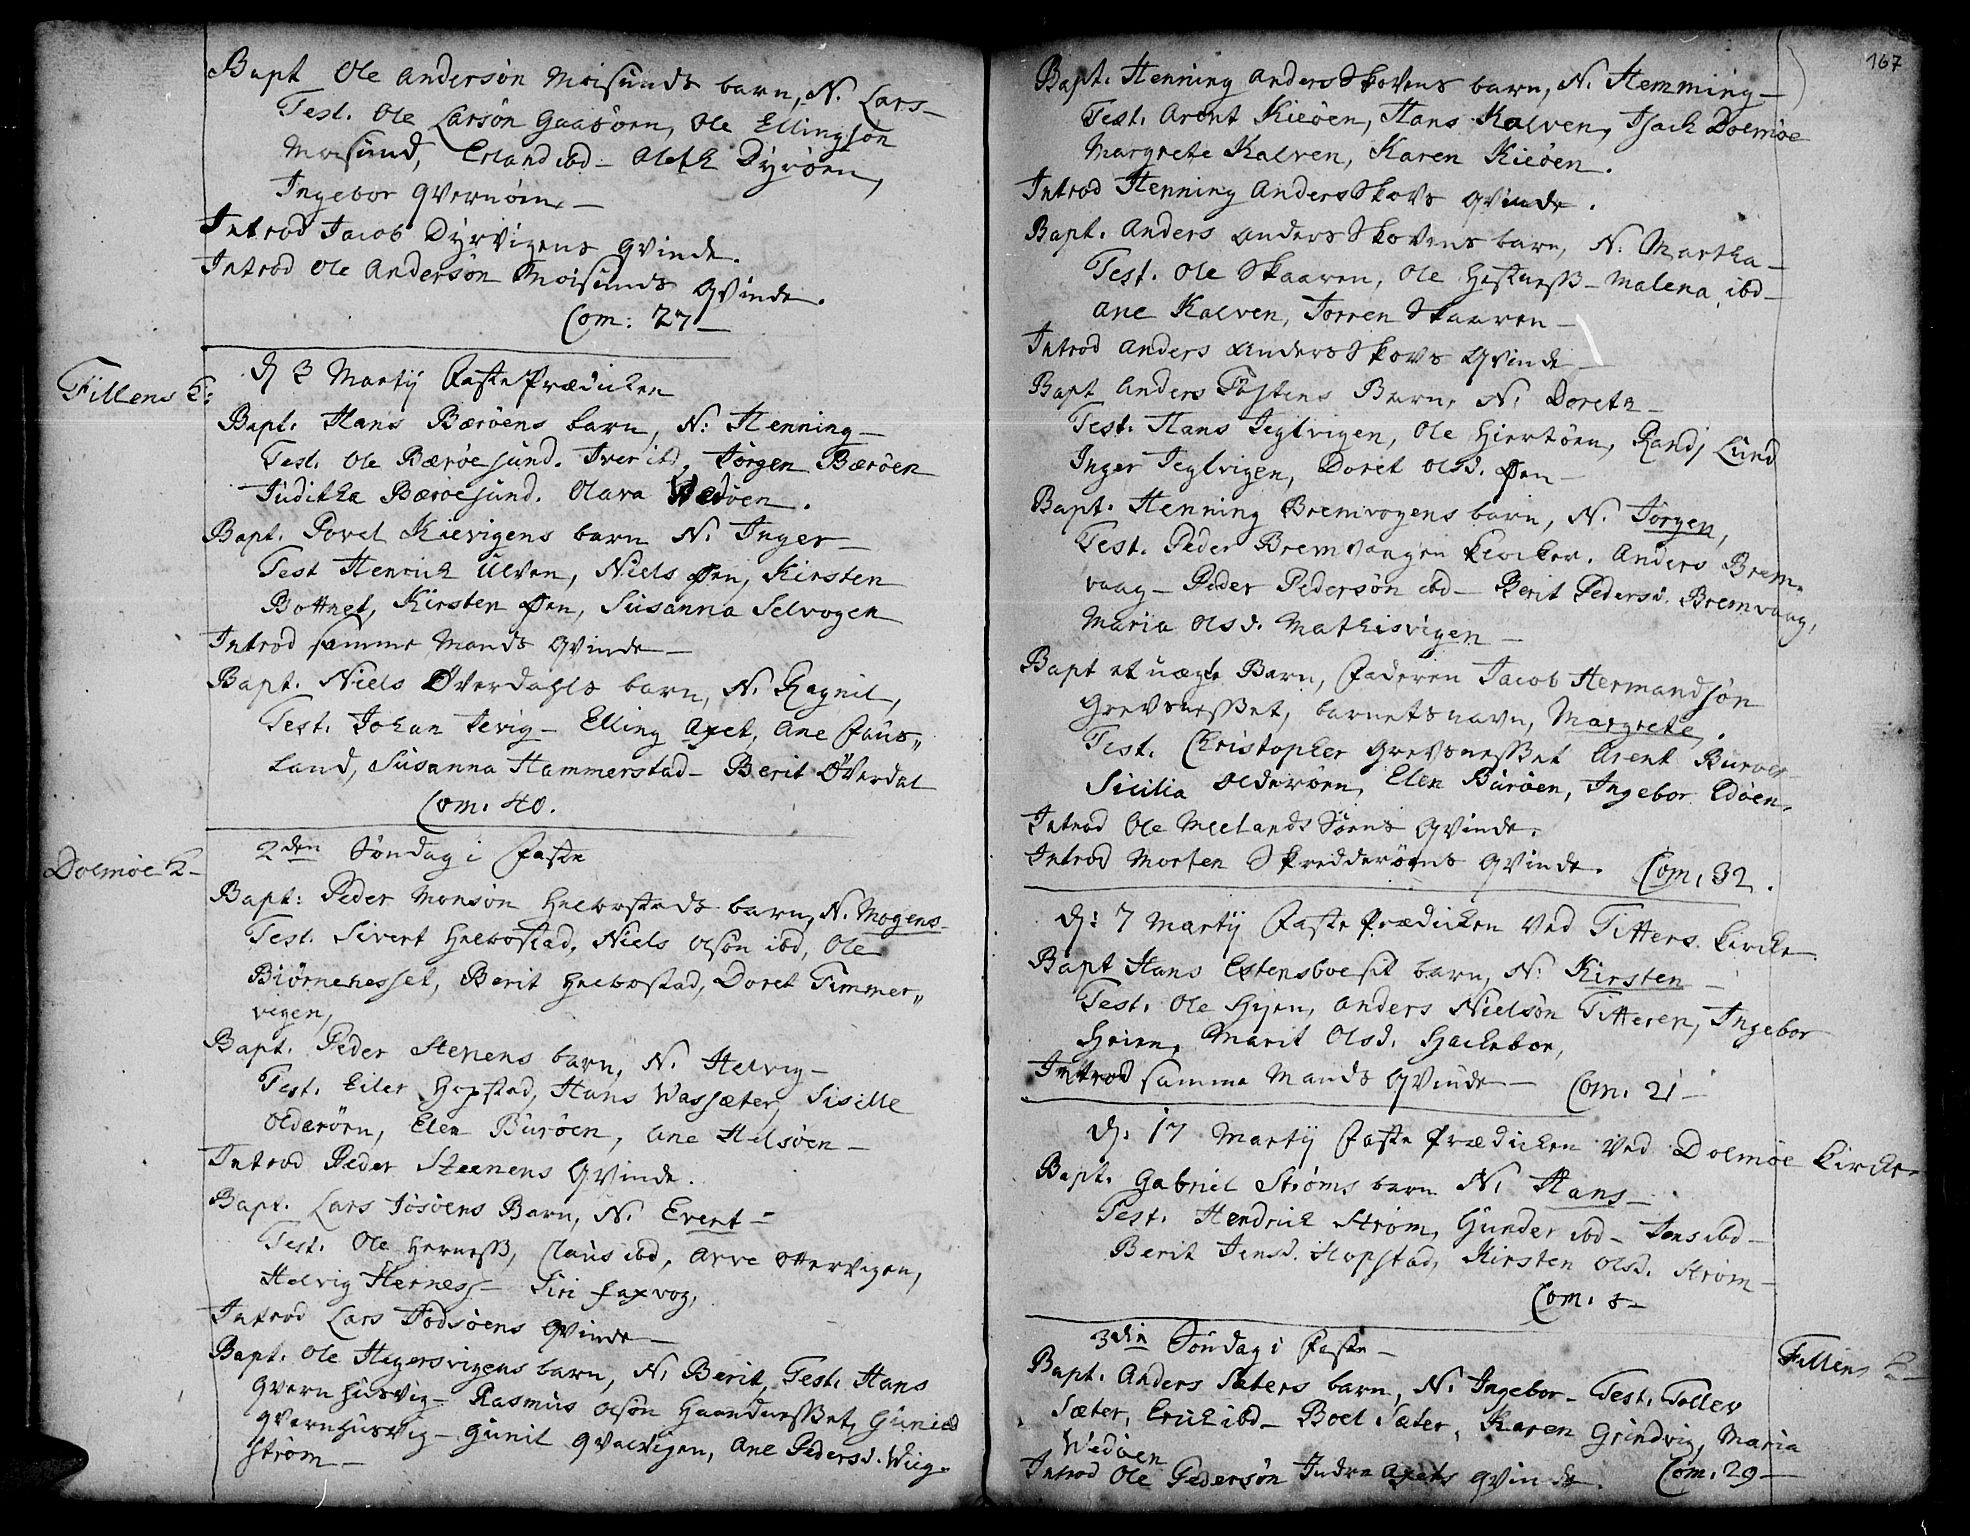 Bapt Ole Andersøn Moisunds barn, N. Lars-
Test. Ole Larsøn Gaasøen, Ole Ellingsøn
Moisund, Erland ibd- Aleth Dyrøen,
Ingebor Qvernøen-
Introd Jacob Dyrvigens Qvinde.
Introd Ole Andersøn Moisunds Qvinde.
Com: 27-
Fillens K:
d 3 Martij FastePrædicken
Bapt. Hans Bærøens barn, N: Henning-
Test. Ole Bærøesund. Iver ibd, Jørgen Bærøen
Juditha Bærøesund. Olava Wedøen.
Bapt. Povel Kievigens barn N. Inger-
Test Henrich Ulven, Niels Øen, Kirsten
Bottnet, Kirsten Øen, Susanna Selvogen
Introd samme Mands Qvinde-
Bapt. Niels Øverdahls barn, N. Hagnil,
Test. Johan Tevig- Elling Axet, Ane Faus„
land, Susanna Hammerstad- Berit Øverdal
Com. 40.
Dolmøe K-
2den Søndag i Faste
Bapt: Peder Monsøn Helbostads barn, N. Mogens-
Test. Sivert Helbostad, Niels Olsøn ibd, Ole
Biørnenesset, Berit Helbostad, Doret Timmer„
vigen,
Bapt. Peder Stenens barn, N. Helvig-
Test. Eiler Hopstad, Hans Wassæter, Sisille
Olderøen, Elen Burøen, Ane Helsøen-
Introd Peder Steenens Qvinde.
Bapt. Lars Josøens Barn, N. Evert-
Test. Ole Herness, Claus ibd, Arve Ottervigen,
Helvig Herness- Siri Faxvog,
Introd Lars Jodsøens Qvinde-
Bapt. Ole Hegersvigens barn, N. Berit, Test. Hans
Qvernhusvig- Rasmus Olsøn Haandnesset, Gunild
Qvernhusvig- Gunil Qvalvigen, Ane Pedersd. Wiig-
Strøm-
167
Bapt. Henning Anders Skovens barn, N. Hemming-
Test. Arent Kieøen, Hans Kalven, Isach Dolmøe
Margrete Kalven, Karen Kieøen.
Introd Henning Anders Skovs Qvinde.
Bapt. Anders Anders Skovens barn, N. Martha-
Test. Ole Skaaren, Ole Hestness- Malena ibd-
Ane Kalven, Torren Skaaren-
Introd Anders Anders Skovs Qvinde-
Bapt Anders Tøstens Barn, N. Doreth-
Test. Hans Tegtvigen, Ole Hiertøen, Randj Lund
Inger Tegtvigen, Doret Olsd. Øen-
Bapt. Henning Bremvogens barn, N. Jørgen,
Test. Peder Bremvangen Klocker. Anders Brem„
vaag- Peder Pedersøn ibd- Berit Pedersd. Bremvaag,
Maria Olsd. Mathisvigen-
Bapt et uægte Barn, Faderen Jacob Hermandsøn
Grevsnesset, barnets navn, Margrete.
Test. Christopher Grevsnesset Arent Burøen-
Sicilia Olderøen, Elen Burøen, Ingebor Edøen.
Introd Ole Meelands Søens Qvinde.
Introd Morten Skredderøens Qvinde. Com. 32.
d: 7 Martij FastePrædicken Ved Titters Kircke
Bapt Hans Estensboesit barn, N: Kirsten-
Test. Ole Hyen, Anders Nielsøn Titteren, Ingebor
Heien, Marit Olsd. Hackeboe,
Introd samme Mands Qvinde- Com. 21-
d. 17 Martij FastePrædicken Ved Dolmøe Kircke-
Bapt. Gabriel Strøms barn N. Hans-
Test. Hendrich Strøm, Gunder ibd- Jens ibd-
Berit Jensd. Hopstad, Kirsten Olsd. Strøm-
Com. 8-
Fillens K-
3die Søndag i Faste-
Bapt. Anders Sæters barn, N. Ingebor- Test. Tollev
Sæter, Erich ibd- Boel Sæter, Karen Grindvig, Maria
Wedøen
Introd Ole Pedersøn Indre Axets Qvinde. Com. 29-